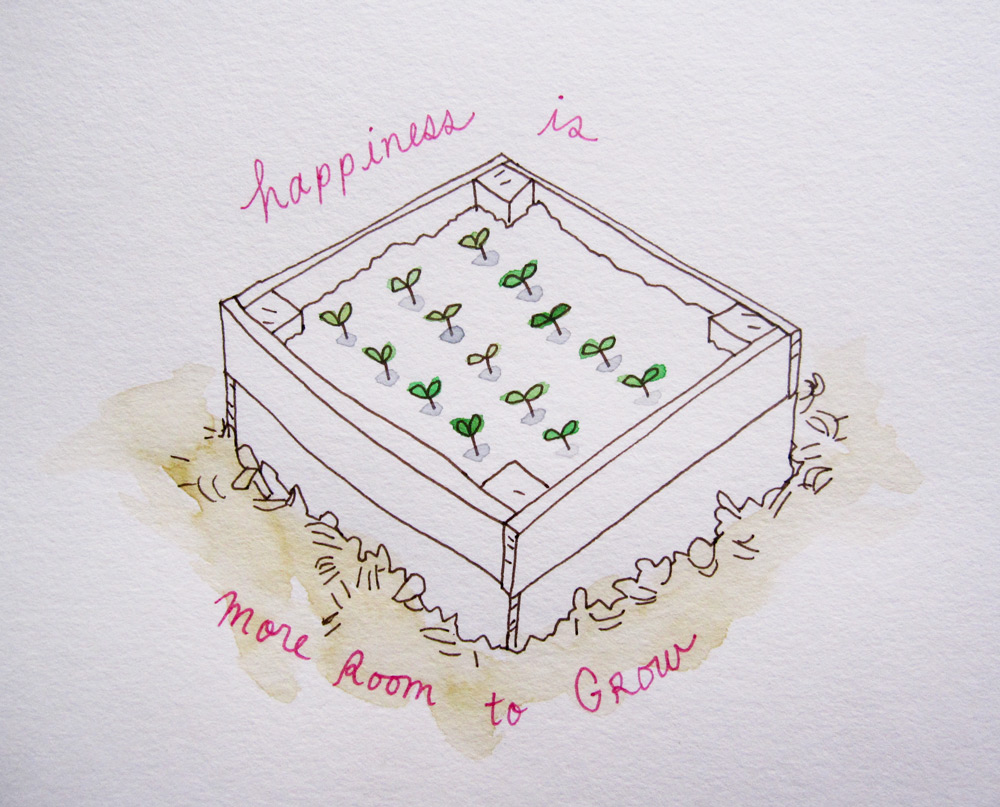 happiness is
More Room to Grow